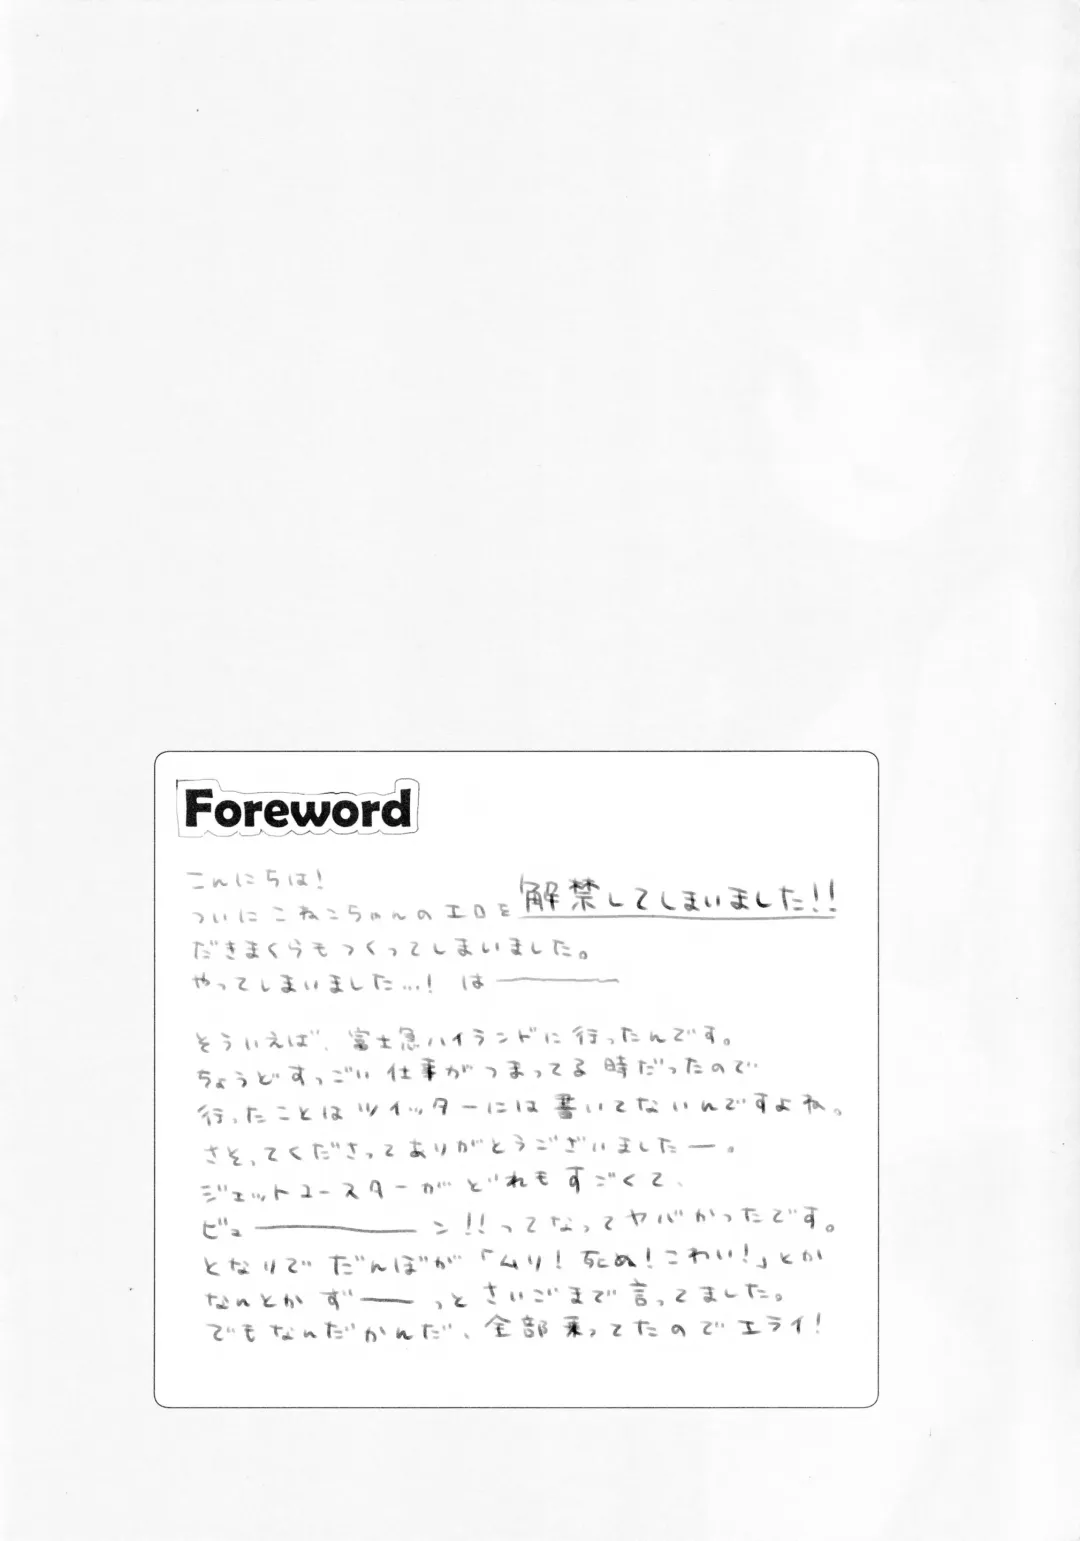 Foreword
こんにちは!
ついにこねこちゃんのエロを解禁してしまいました!!
だきまくらもつくってしまいました。
やってしまいました…! はー
そういえば、富士急ハイランドに行ったんです。
ちょうどすっごい仕事がつまってる時だったので
行ったことはツイッターには書いてないんですよね。
さそってくださってありがとうございましたー。
ジェットコースターがどれもすごくて、
ビューーン!!ってなってヤバかったです。
となりでだんぼが「ムリ!死ぬ!こわい!」とか
なんとかずーーっとさいごまで言ってました。
でもなんだかんだ、全部乗ってたのでエライ!